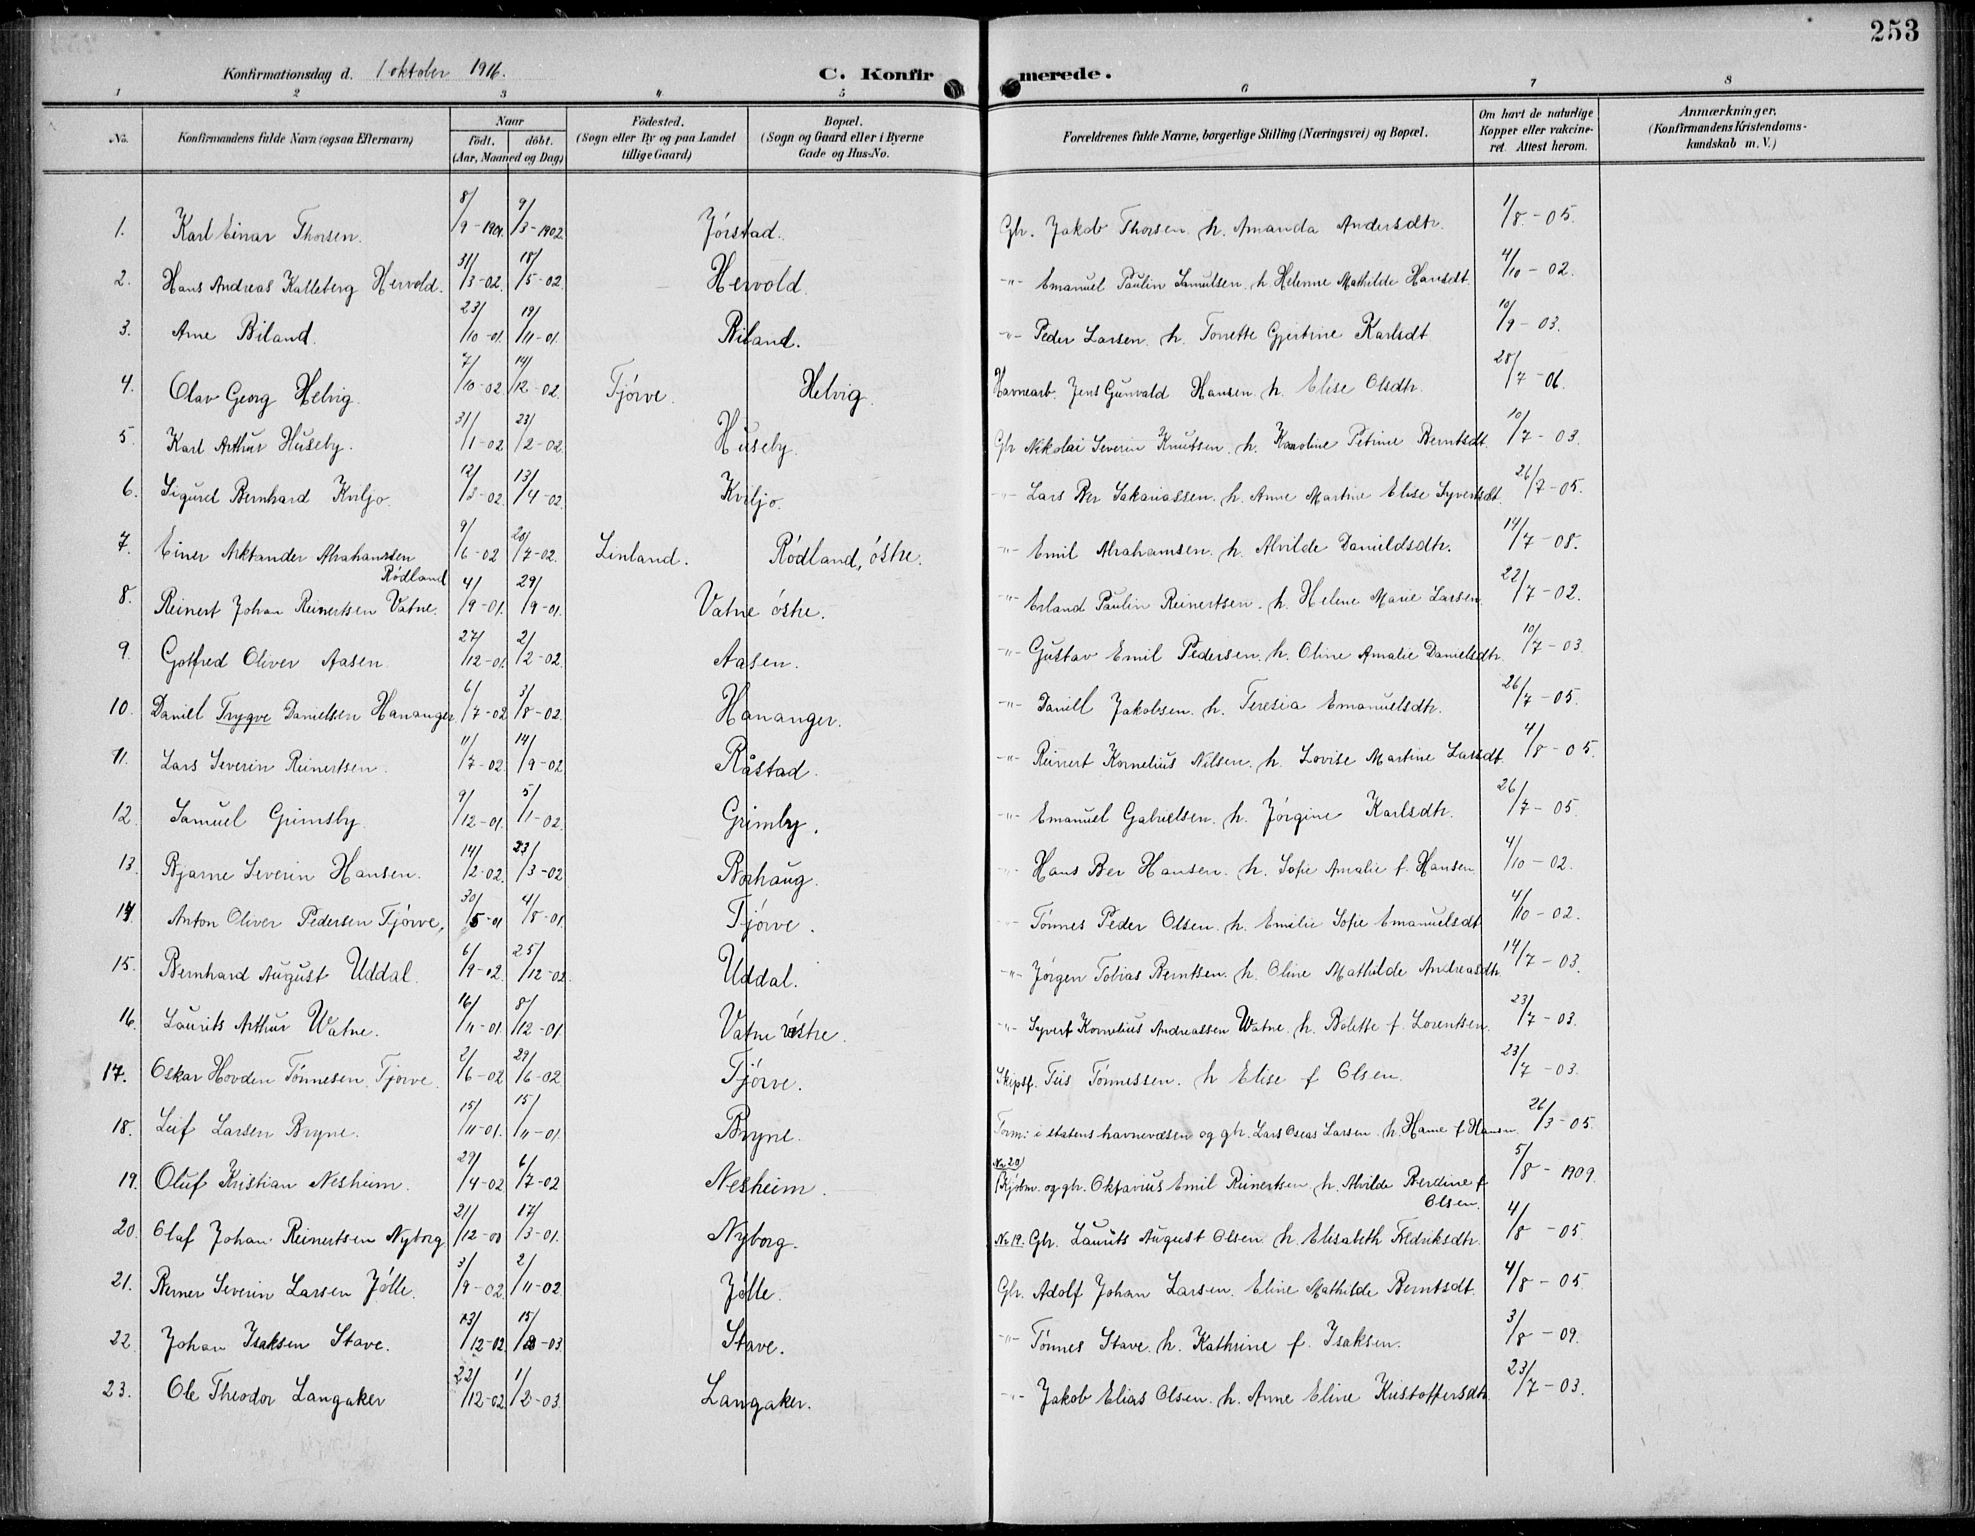 253
Konfirmationsdag d. 1 oktober 1916. C. Konfirmerede.
1 2 3 4 5 6 7 8
No. Konfirmandens fulde Navn (ogsaa Efternavn) Naar født. døbt. (Aar, Maaned og Dag) Fødested. (Sogn eller By og paa Landet tillige Gaard) Bopæl. (Sogn og Gaard eller i Byerne Gade og Hus-No. Forældrenes fulde Navne, borgerlige Stilling (Næringsvei) og Bopæl. Om havt de naturlige Kopper eller vakcineret. Attest herom. Anmærkninger. (Konfirmandens Kristendomskundskab m. V.)
1. Karl Einar Thorsen. 8/9-1901. 9/3-1902. Jørstad. Gbr. Jakob Thorsen. h. Amanda Andersdtr. 1/8-05.
2. Hans Andreas Kalleberg Hervold. 31/3-02. 18/5-02. Hervold. -"- Emanuel Paulin Samuelsen. h. Helenne Mathilde Hansdt. 4/10-02.
3. Arne Biland. 23/10-01. 19/11-01. Biland. -"- Peder Larsen. h. Tonette Gjertine Karlsdt. 10/9-03.
4. Olav Georg Helvig. 7/10-02 14/12-02. Tjørve. Helvig. Havnearb. Jens Gunvald Hansen h. Elise Olsdtr. 28/7-06.
5. Karl Arthur Huseby. 31/1-02 23/2-02. Huseby. Gbr Nikolai Severin Knutsen. h. Karoline Petrine Berntsdt. 10/7-03.
6. Sigurd Bernhard Kviljo. 12/3-02 13/4-02. Kviljo. -"- Lars Ber Sakariassen. h. Anne Martine Elise Syvertsdt. 26/7-05.
7. Einer Arktander Abrahamsen Rødland 9/6-02 20/7-02. Linland. Rødland, østre. -"- Emil Abrahamsen. h. Alvilde Danieldsdtr. 14/7-08.
8. Reinert Johan Reinertsen Vatne. 4/9-01. 29/9-01. Vatne østre. -"- Erland Paulin Reinertsen. h. Helene Marie Larsen. 22/7-02.
9. Gotfred Oliver Aasen. 27/12-01. 2/2-02. Aasen. -"- Gustav Emil Pedersen. h. Oline Amalie Danielsdtr. 10/7-03.
10. Daniel Trygve Danielsen Hananger 6/7-02 3/8-02. Hananger. -"- Daniel Jakobsen. h. Teresia Emanuelsdtr. 26/7-05.
11. Lars Severin Reinertsen. 11/7-02 14/9-02 Råstad. -"- Reinert Kornelius Nilsen. h. Lovise Martine Larsdt. 4/8-05.
12. Samuel Grimsby. 9/12-01. 5/1-02. Grimby. -"- Emanuel Gabrielsen. h. Jørgine Karlsdtr. 26/7-05.
13. Bjarne Severin Hansen. 14/2-02. 23/3-02 Borhaug. -"- Hans Ber Hansen. h. Sofie Amalie f. Hansen 4/10-02.
14. Anton Oliver Pedersen Tjørve. 30/5-01 4/8-01. Tjørve. -"- Tønnes Peder Olsen. h. Emilie Sofie Emanuelsdt. 4/10-02.
15. Bernhard August Uddal. 6/9-02. 25/12-02. Uddal. -"- Jørgen Tobias Berntsen. h. Oline Mathilde Andreasdtr. 14/7-03.
16. Laurits Arthur Watne. 16/11-01. 8/12-01 Vatne vestre. -"- Syvert Kornelius Andreassen Watne. h. Bolette f. Lorentsen. 23/7-03.
17. Oskar Hovden Tønnesen. Tjørve. 2/6-02 29/6-02. Tjørve. Skipsf. Teis Tønnessen. h Elise f Olsen. 23/7-03.
18. Leif Larsen Bryne. 15/11-01. 15/11-01. Bryne. Form: i statens havnevæsen og gbr. Lars Oseas Larsen. h. Hanne f. Hansn. 26/3-05.
19. Oluf Kristian Nesheim. 29/4-02 6/7-02 Nesheim. (No 20) Kjøbm. og gbr. Oktavius Emil Reinertsen h. Alvilde Berdine f Olsen. 5/8-1909.
20. Olaf Johan Reinertsen Nyborg 21/12-00 17/3-01. Nyborg. No 19. Gbr. Laurits August Olsen. h. Elisabeth Fredriksdtr. 4/8-05.
21. Berner Severin Larsen Jølle. 3/9-02. 2/11-02. Jølle. Gbr. Adolf Johan Larsen. Eline Mathilde Berntsdt. 4/8-05.
22. Johan Isaksen Stave. 13/12-02. 15/-03. Stave. -"- Tønnes Stave. h. Kathrine f. Isaksen. 3/8-09.
23. Ole Theodor Langaker 22/12-02 1/2-03. Langaker. -"- Jakob Elias Olsen. h. Anne Eline Kristoffersdtr. 23/7-03.